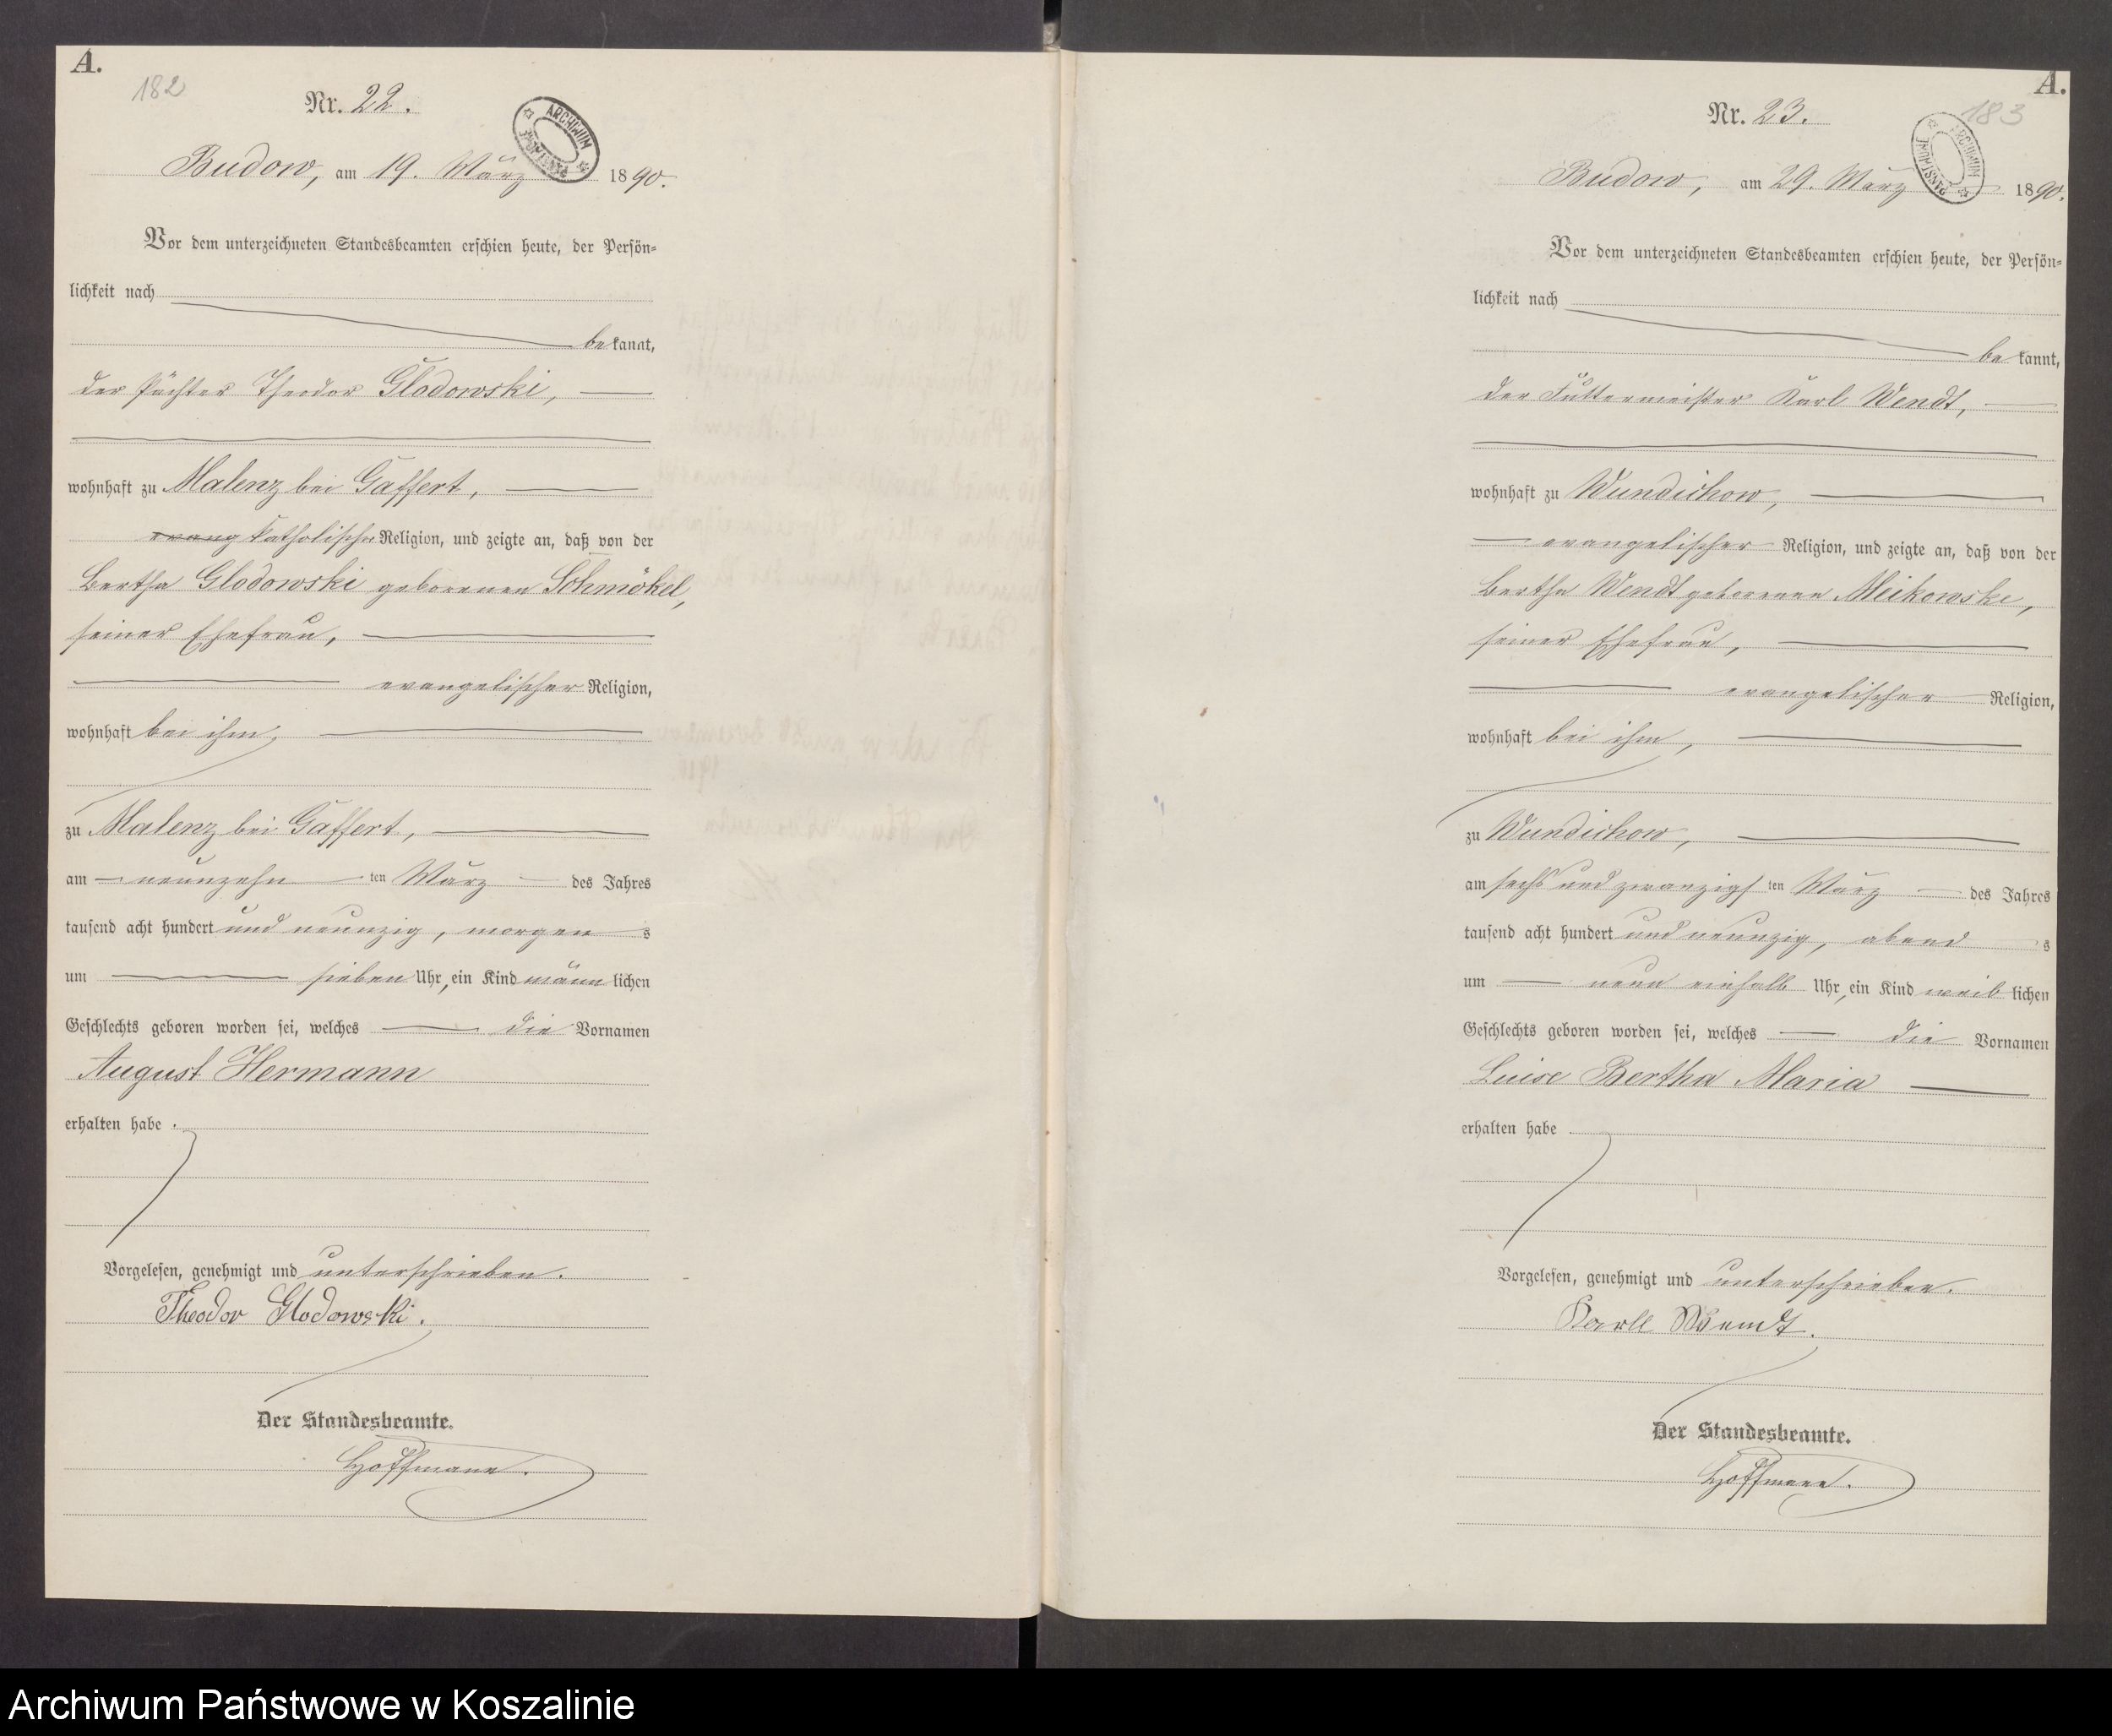 A.
182
Nr. 22.
ARCHIWUM PAŃSTWOWE
Budow, am 19. März 1890.
Vor dem unterzeichneten Standesbeamten erschien heute, der Persön=
lichkeit nach
bekannt,
der Pächter Theodor Glodowski,
wohnhaft zu Malenz bei Gaffert,
evang katholischer Religion, und zeigte an, daß von der
Bertha Glodowski geborenen Schmökel,
seiner Ehefrau,
evangelischer Religion,
wohnhaft bei ihm,
zu Malenz bei Gaffert,
am neunzehn ten März des Jahres
tausend acht hundert und neunzig, morgens
um sieben Uhr, ein Kind männlichen
Geschlechts geboren worden sei, welches die Vornamen
August Hermann
erhalten habe.
Vorgelesen, genehmigt und unterschrieben.
Theodor Glodowski.
Der Standesbeamte.
Hoffmann.
A.
183
Nr. 23.
ARCHIWUM PAŃSTWOWE
Budow, am 29. März 1890.
Vor dem unterzeichneten Standesbeamten erschien heute, der Persön=
lichkeit nach
bekannt,
der Futtermeister Karl Wendt,
wohnhaft zu Wundichow,
evangelischer Religion, und zeigte an, daß von der
Bertha Wendt geborenen Meikowske,
seiner Ehefrau,
evangelischer Religion,
wohnhaft bei ihm,
zu Wundichow,
am sechs und zwanzigsten März des Jahres
tausend acht hundert und neunzig, abends
um neun einhalb Uhr, ein Kind weiblichen
Geschlechts geboren worden sei, welches die Vornamen
Luise Bertha Maria
erhalten habe
Vorgelesen, genehmigt und unterschrieben.
Karll Wendt.
Der Standesbeamte.
Hoffmann.
Archiwum Państwowe w Koszalinie